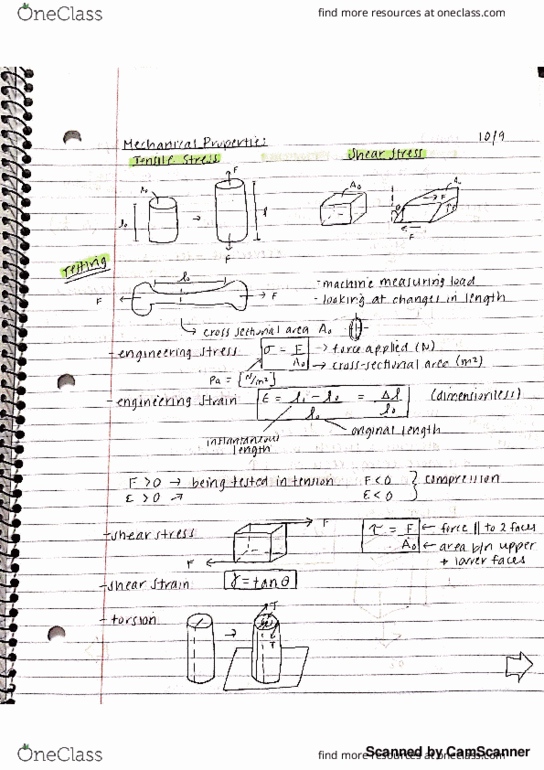 OneClass
find more resources at oneclass.com
10/9
Mechanical Properties
Tensile Stress
Shear Stress
A₀
F
A₀
A₀
l₀
l
F
F
F
Testing
l₀
F
F
- machine measuring load
- looking at changes in length
cross sectional area A₀
- engineering stress σ = F/A₀ → force applied (N)
→ cross-sectional area (m²)
Pa = [N/m²]
- engineering strain ε = lᵢ - l₀ / l₀ = Δl / l₀ (dimensionless)
instantaneous length
original length
F > 0 → being tested in tension F < 0 } compression
ε > 0 ε < 0
- shear stress
F
F
τ = F/A₀ ← force || to 2 faces
← area b/n upper
+ lower faces
- shear strain γ = tan θ
- torsion
T
T
OneClass
find more resources at oneclass.com
Scanned by CamScanner